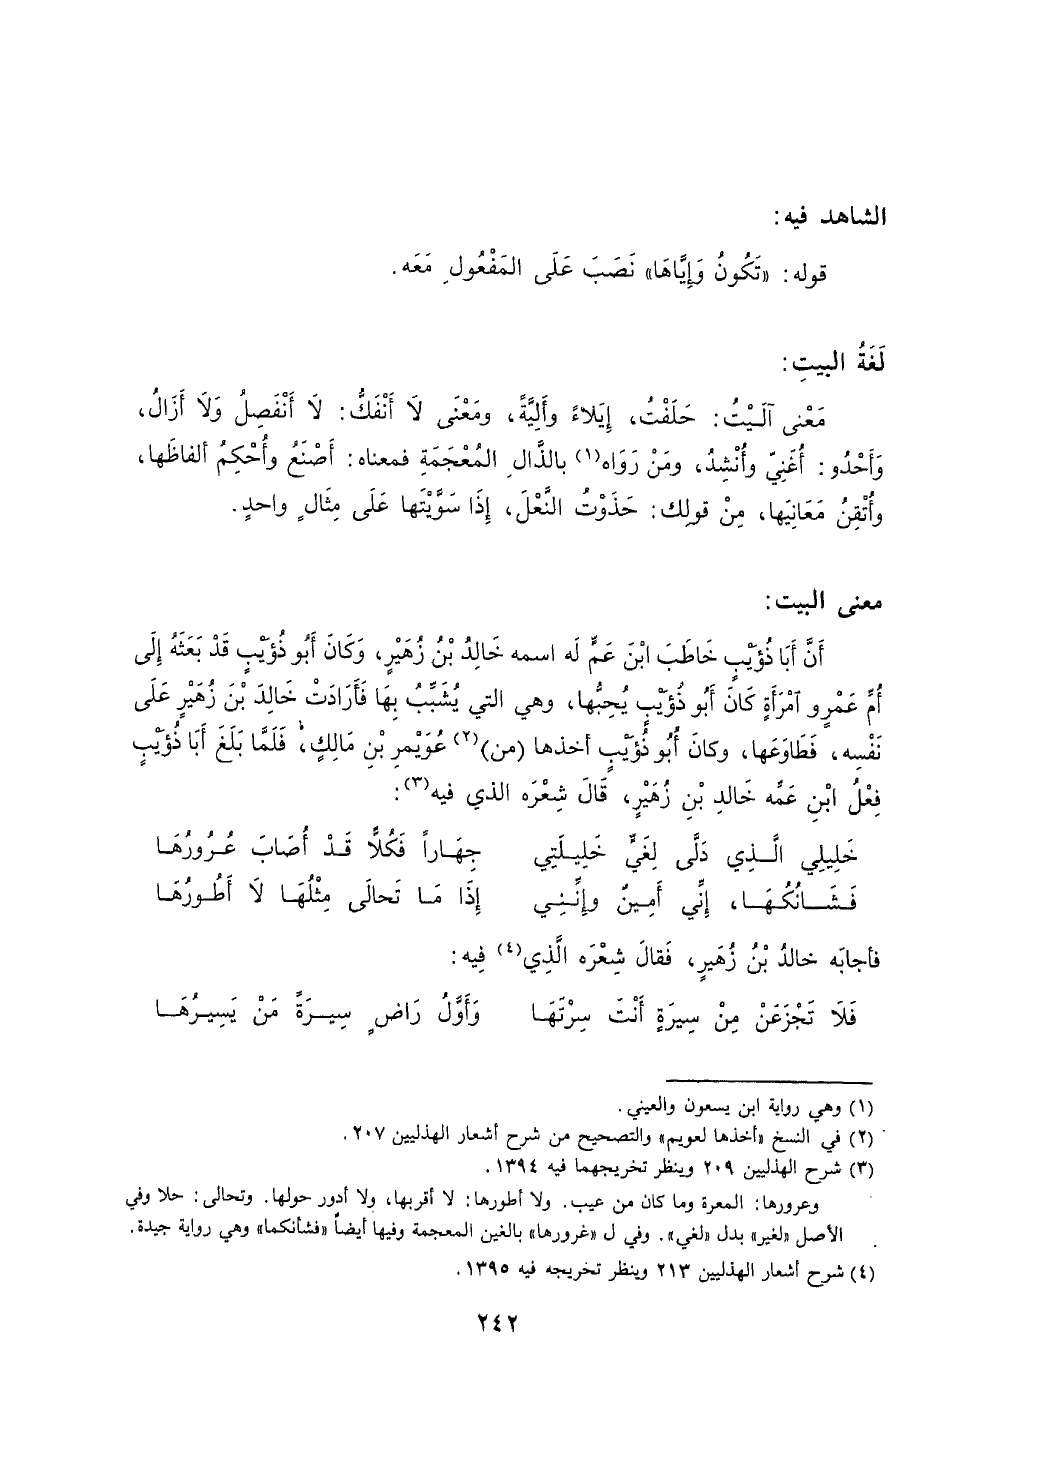 الشاهد فيه:
قوله: «تَكُونُ وَإِيَّاهَا» نَصَبَ عَلَى المَفْعُولِ مَعَه.
لَغَةُ البيتِ:
مَعْنى آلَيْتُ: حَلَفْتُ، إيَلاءً وأَلِيَّةً، ومَعْنَى لَا أَنْفَكُّ: لَا أَنْفَصِلُ وَلَا أَزَالُ،
وَأَحْدُو: أُغَنِيّ وأُنْشِدُ، ومَنْ رَوَاه(١) بالذَّالِ المُعْجَمَةِ فمعناه: أَصْنَعُ وأُحْكِمُ ألفاظَها،
وأُتْقِنُ مَعَانِيَها، مِنْ قولِك: حَذَوْتُ النَّعْلَ، إِذَا سَوَّيْتَها عَلَى مِثَالٍ واحدٍ.
معنى البيت:
أَنَّ أَبَا ذُؤَيْبٍ خَاطَبَ ابْنَ عَمٍّ لَه اسمه خَالِدُ بْنُ زُهَيْرٍ، وَكَانَ أَبُو ذُؤَيْبٍ قَدْ بَعَثَهُ إِلَى
أُمِّ عَمْرٍو ٱمْرَأَةٍ كَانَ أَبُو ذُؤَيْبٍ يُحِبُّها، وهي التي يُشَبِّبُ بِهَا فَأَرَادَتْ خَالِدَ بْنَ زُهَيْرٍ عَلَى
نَفْسِه، فَطَاوَعَها، وكانَ أَبُو ذُؤَيْبٍ أخذها (من)(٢) عُوَيْمرِ بْنِ مَالِكٍ، فَلَمَّا بَلَغَ أَبَا ذُؤَيْبٍ
فِعْلُ ابْنِ عَمِّه خَالدِ بْنِ زُهَيْرٍ، قَالَ شِعْرَه الذي فيه(٣):
خَلِيلِي الَّذِي دَلَّى لِغَيٍّ خَلِيلَتِي جِهَاراً فَكُلًّا قَدْ أَصَابَ عُرُورُهَا
فَشَانُكُهَا، إِنِّي أَمِينٌ وإِنَّنِي إِذَا مَا تَحالَى مِثْلُهَا لَا أَطُورُهَا
فأجابَه خالدُ بْنُ زُهَيرٍ، فَقالَ شِعْرَه الَّذِي(٤) فِيه:
فَلَا تَجْزَعَنْ مِنْ سِيرَةٍ أَنْتَ سِرْتَهَا وَأَوَّلُ رَاضٍ سِيرَةً مَنْ يَسِيرُهَا
(١) وهي رواية ابن يسعون والعيني.
(٢) في النسخ «أخذها لعويم» والتصحيح من شرح أشعار الهذليين ٢٠٧.
(٣) شرح الهذليين ٢٠٩ وينظر تخريجهما فيه ١٣٩٤.
وعرورها: المعرة وما كان من عيب. ولا أطورها: لا أقربها، ولا أدور حولها. وتحالى: حلا وفي
الأصل «لغير» بدل «لغي». وفي ل «غرورها» بالغين المعجمة وفيها أيضاً «فشأنكما» وهي رواية جيدة.
(٤) شرح أشعار الهذليين ٢١٣ وينظر تخريجه فيه ١٣٩٥.
٢٤٢